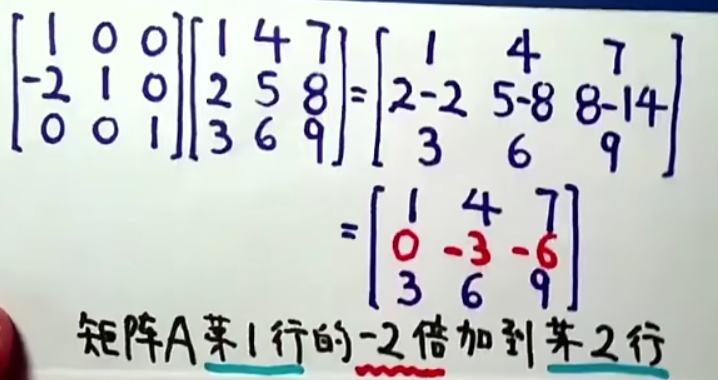 [1 0 0; -2 1 0; 0 0 1][1 4 7; 2 5 8; 3 6 9]=[1 4 7; 2-2 5-8 8-14; 3 6 9]
=[1 4 7; 0 -3 -6; 3 6 9]
矩阵A某1行的-2倍加到某2行